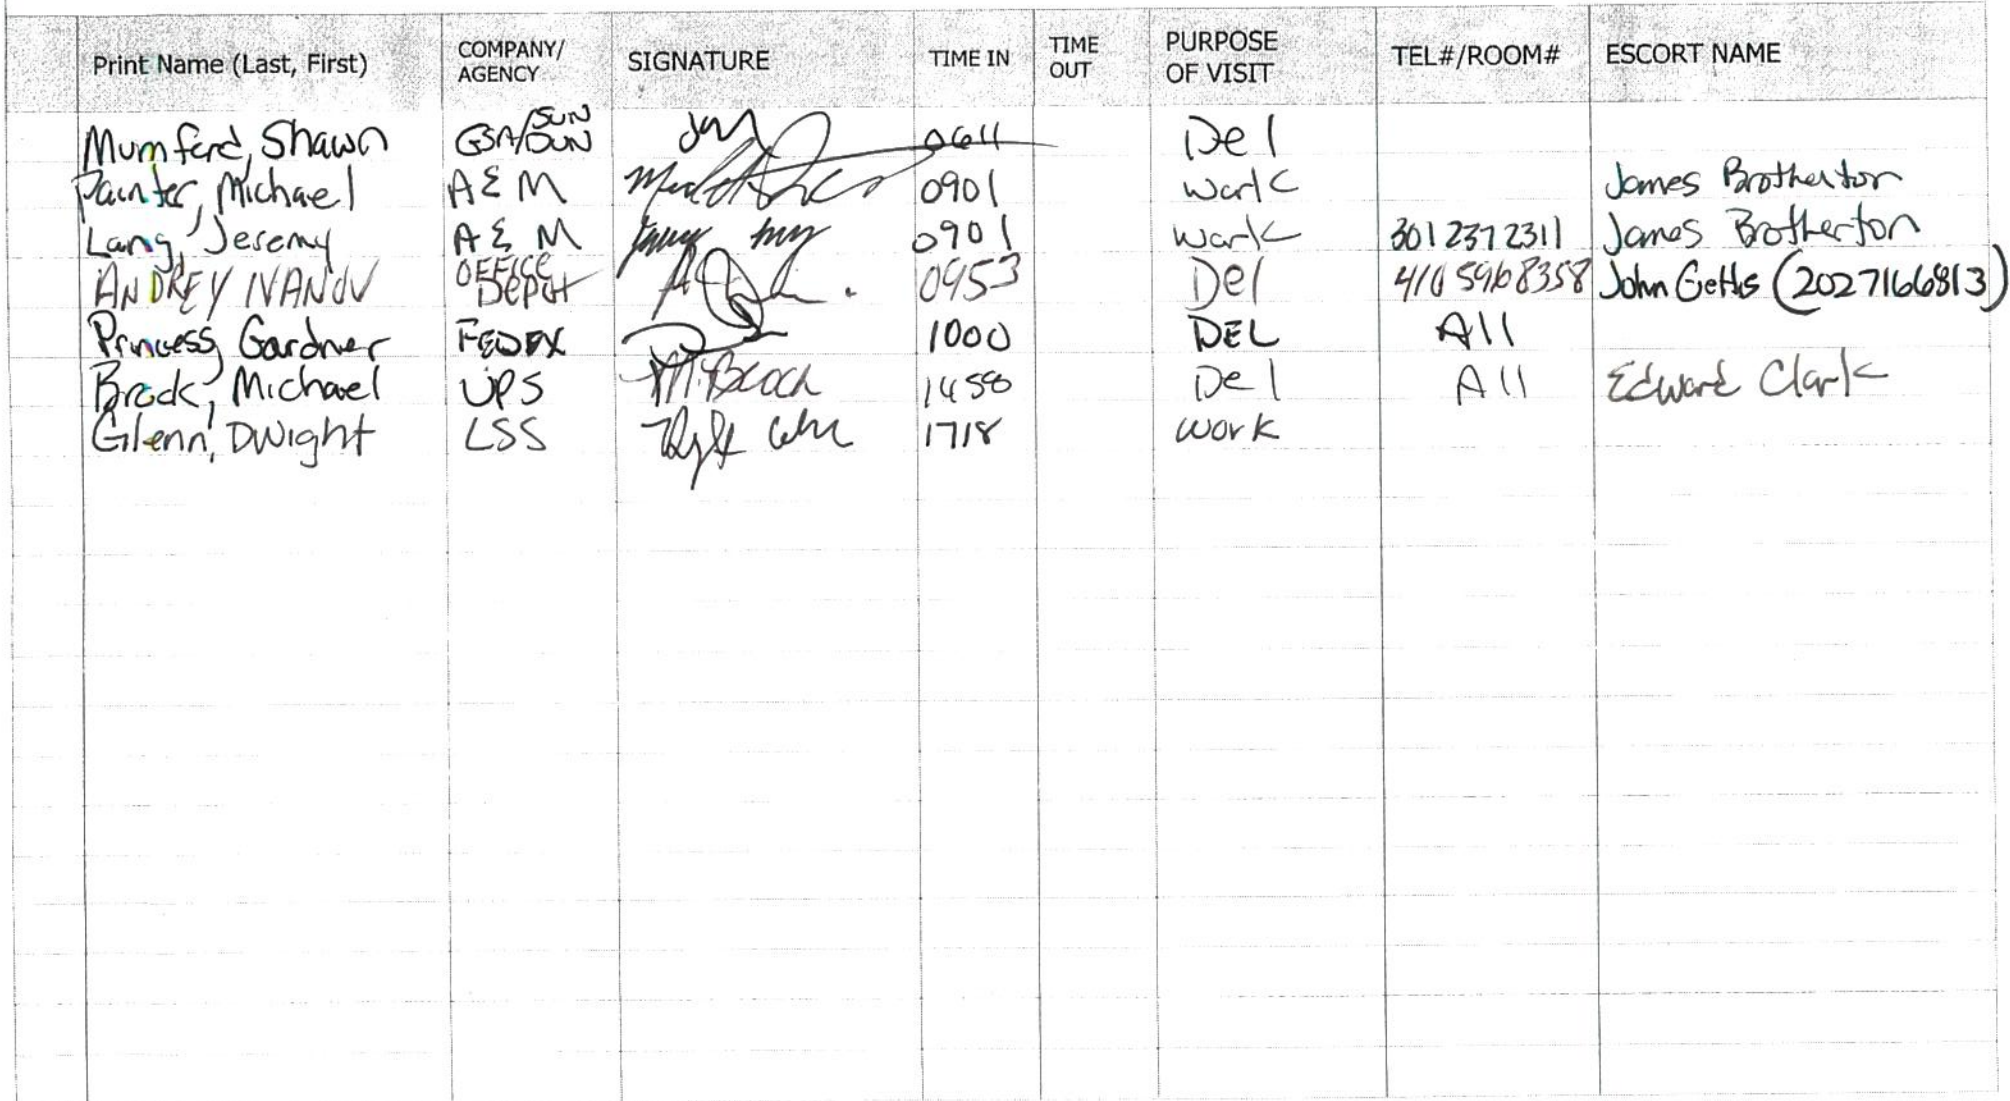 Print Name (Last, First) COMPANY/ AGENCY SIGNATURE TIME IN TIME OUT PURPOSE OF VISIT TEL#/ROOM# ESCORT NAME
Mumford, Shawn GSA/SUN 0611 Del
Painter, Michael A & M 0901 Work James Brotherton
Lang, Jeremy A & M 0901 Work 3012372311 James Brotherton
ANDREY IVANOV OFFICE Depot 0953 Del 4105968358 John Getts (2027166813)
Princess, Gardner FEDEX 1000 DEL All
Brock, Michael UPS M. Brock 1458 Del All Edward Clark
Glenn, Dwight LSS 1718 work